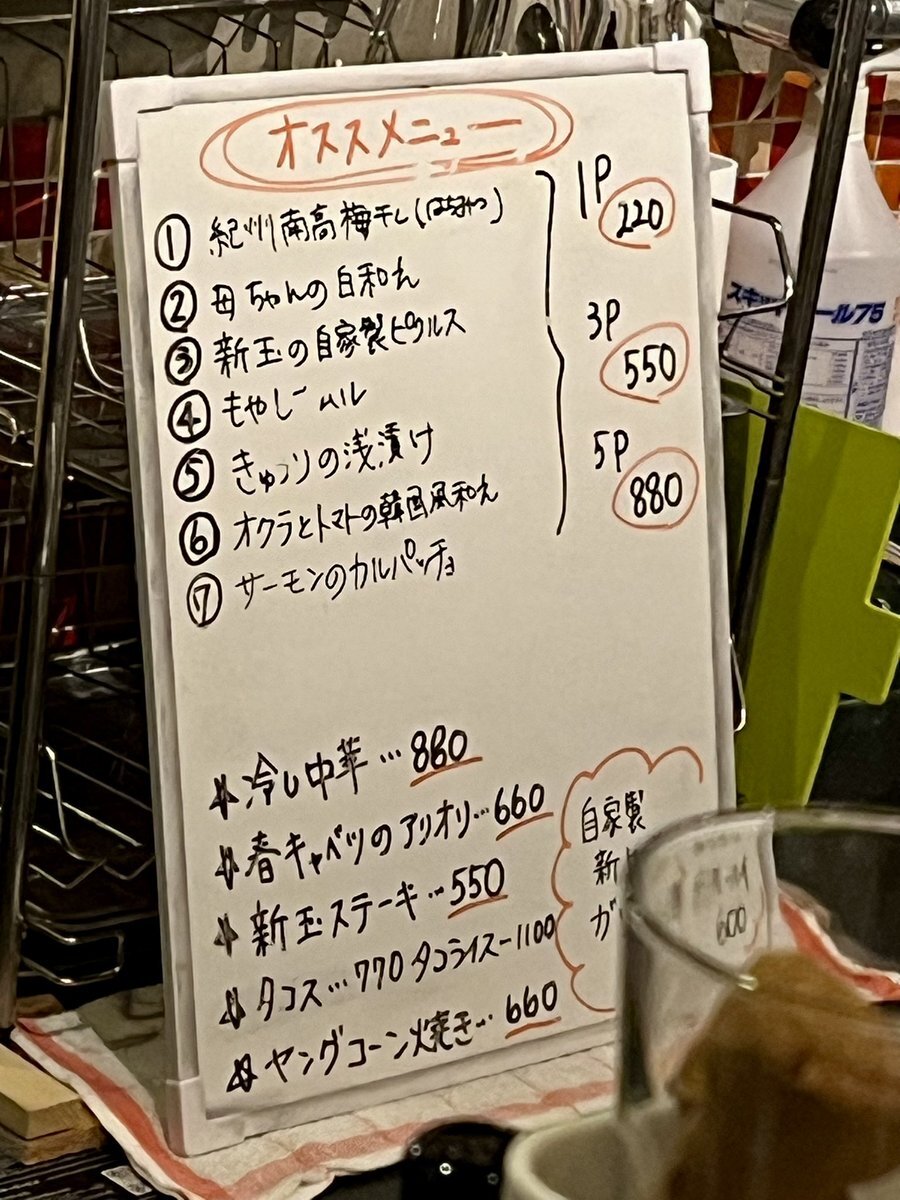 オススメニュー
① 紀州南高梅干し(はちみつ)
② 母ちゃんの白和え
③ 新玉の自家製ピクルス
④ もやしナムル
⑤ きゅうりの浅漬け
⑥ オクラとトマトの韓国風和え
⑦ サーモンのカルパッチョ
1P
220
3P
550
5P
880
☆ 冷し中華…880
☆ 春キャベツのアリオリ…660
☆ 新玉ステーキ…550
☆ タコス…770 タコライスー1100
☆ ヤングコーン焼き…660
自家製
新
ガ
600